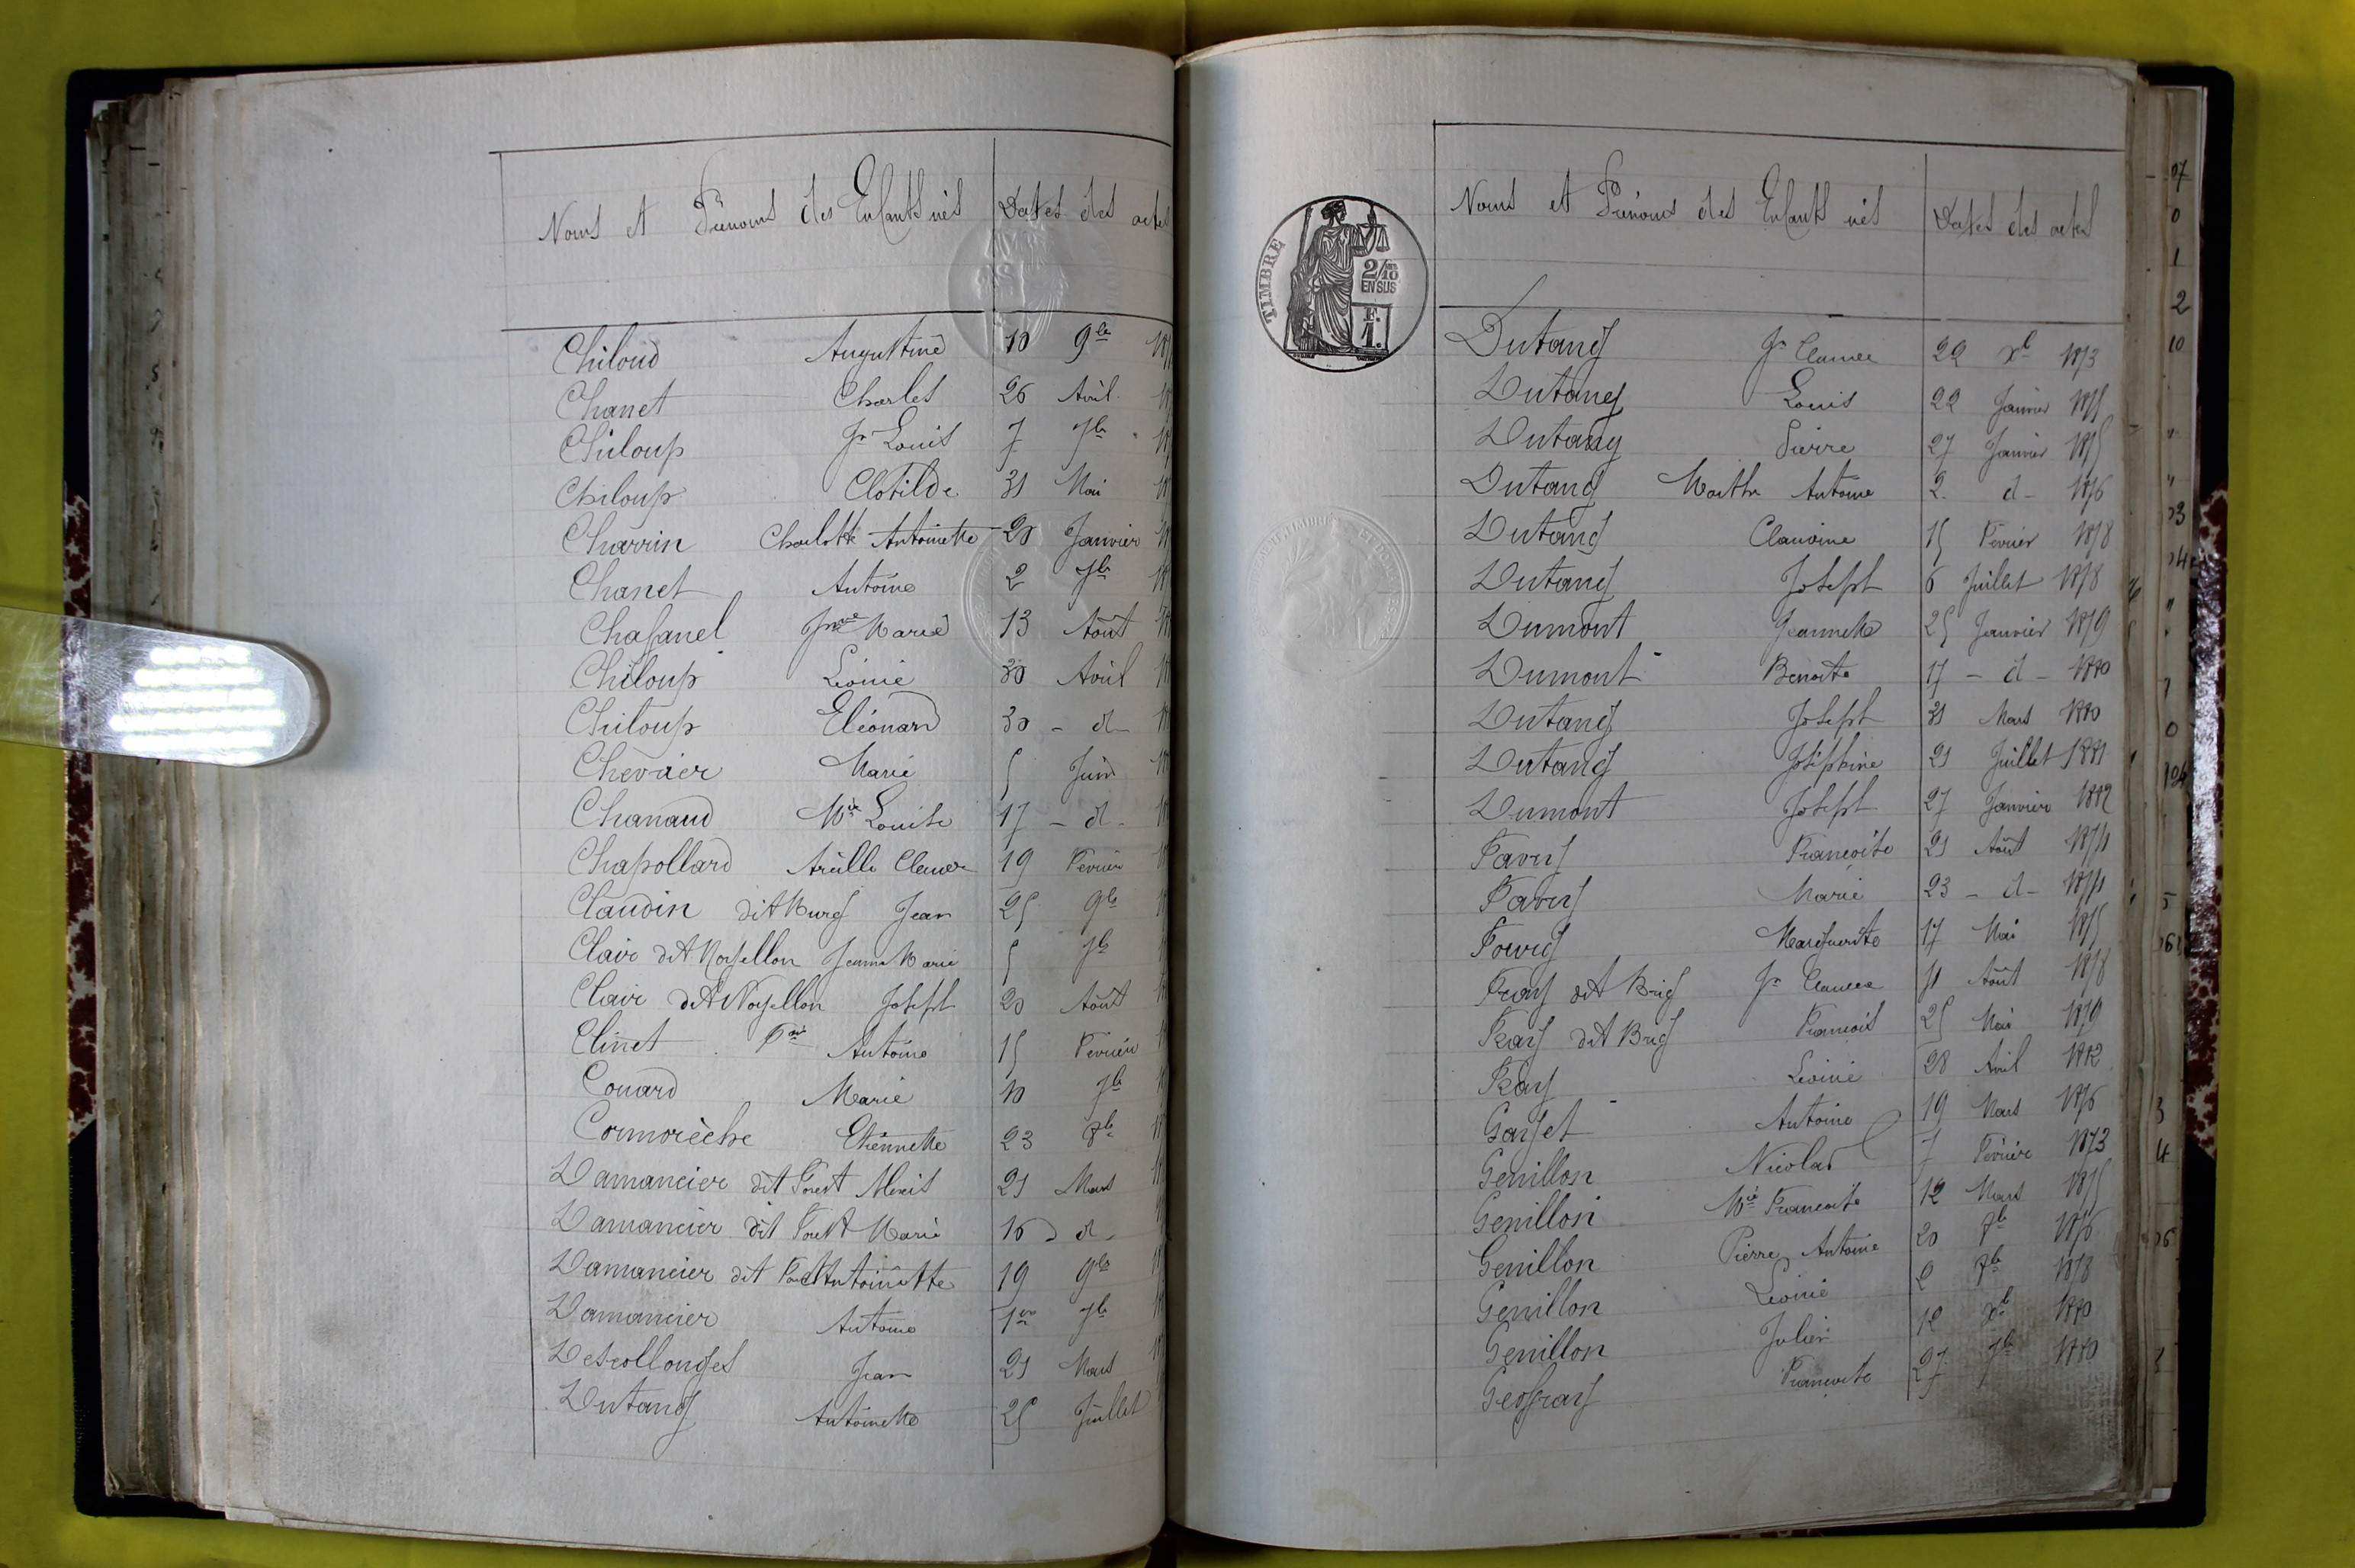 Noms et Prénoms des Enfants nés Dates des actes
Chiloud Augustine 10 9bre
Chanet Charles 26 Avril
Chiloup Jn Louis 7 7bre
Chiloup Clotilde 31 Mai
Charrin Charlotte Antoinette 20 Janvier
Chanet Antoine 2 7bre
Chasanel Jnne Marie 13 Août
Chiloup Léonie 30 Avril
Chiloup Eléonard 30 - d -
Chevrier Marie 5 Juin
Chanaud Mie Louise 17 - d -
Chapollard Claude 19 Février
Claudin dit Burg Jean 25 9bre
Clair dit Noyellon Jeanne Marie 5 7bre
Clair dit Noyellon Joseph 20 Août
Clinet Antoine 15 Février
Couard Marie 10 7bre
Cormorèche Etiennette 23 8bre
Damancier dit Forest Alexis 21 Mars
Damancier dit Forest Marie 16 - d -
Damancier dit Forest Antoinette 19 9bre
Damancier Antoine 1er 7bre
Descollonges Jean 21 Mars
Dutang Antoinette 25 Juillet
TIMBRE
2/10
EN SUS
F.
1.
Noms et Prénoms des Enfants nés Dates des actes
Dutang Jn Claude 22 Xbre 1873
Dutang Louis 22 Janvier 1875
Dutang Pierre 27 Janvier 1875
Dutang Marthe Antoine 2 d - 1876
Dutang Claudine 15 Février 1878
Dutang Joseph 6 Juillet 1878
Dumont Jeannette 25 Janvier 1879
Dumont Benoite 17 - d - 1880
Dutang Joseph 31 Mars 1880
Dutang Joséphine 21 Juillet 1881
Dumont Joseph 27 Janvier 1882
Favry Françoise 21 Août 1874
Favry Marie 23 - d - 1874
Marguerite 17 Mai 1875
Fray dit Brig Jn Claude 11 Août 1878
Fray dit Brig François 25 Mai 1879
Fray Léonie 28 Avril 1882
Garget Antoine 19 Mars 1876
Genillon Nicolas 7 Février 1873
Genillon Mie Françoise 12 Mars 1875
Genillon Pierre Antoine 20 8bre 1876
Genillon Léonie 2 8bre 1878
Genillon Julien 12 Xbre 1880
Geoffray Françoise 27 7bre 1880